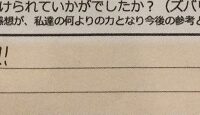 けられていかがでしたか?(ズバリ
感想が、私達の何よりの力となり今後の参考と
!!